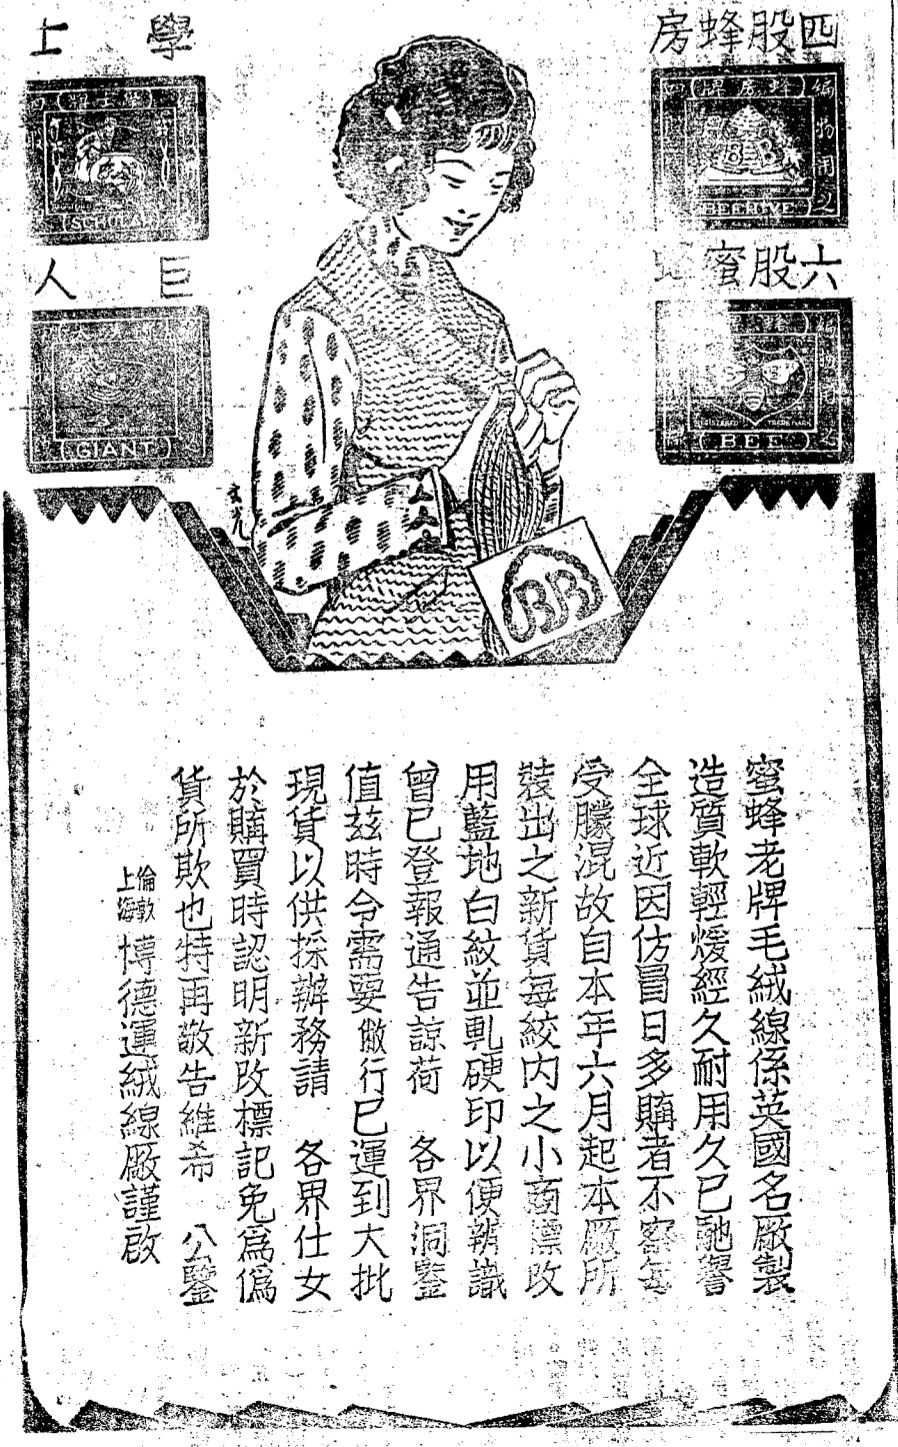 四股蜂房
BEEHIVE
六股蜜
BEE
學士
SCHOLAR
巨人
GIANT
BB
蜜蜂老牌毛絨線係英國名廠製
造質軟輕煖經久耐用久已馳譽
全球近因仿冒日多購者不察每
受朦混故自本年六月起本廠所
裝出之新貨每絞內之小商標改
用藍地白紋並軋硬印以便辨識
曾已登報通告諒荷　各界洞鑒
值茲時令需要敝行已運到大批
現貨以供採辦務請　各界仕女
於購買時認明新改標記免為偽
貨所欺也特再敬告維希　公鑒
倫敦
上海
博德運絨線廠謹啟